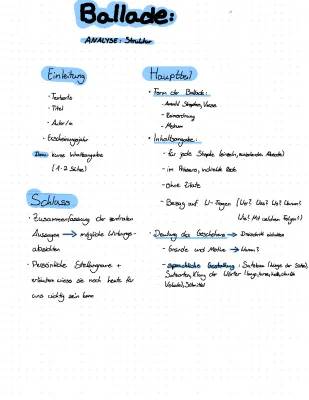 Ballade:
ANALYSE: Struktur
Einleitung
- Textsorte
- Titel
- Autor/in
- Erscheinungsjahr
Dann: kurze Inhaltsangabe
(1-2 Sätze)
Schluss
- Zusammenfassung der zentralen
Aussagen → mögliche Wirkungs-
absichten
- Persönliche Stellungnahme +
erläutern wieso sie noch heute für
uns wichtig sein kann
Hauptteil
• Form der Ballade:
- Anzahl Strophen, Verse
- Reimordnung
- Metrum
• Inhaltsangabe:
- für jede Strophe (einzeln, Absätze)
- im Präsens, indirekte Rede
- ohne Zitate
- Bezug auf W-Fragen (Wer? Was? Wo? Warum?
Wie? Mit welchen Folgen?)
• Deutung des Geschehens →
- Gründe und Motive → Warum?
- sprachliche Gestaltung: Satzbau (Länge der Sätze),
Satzarten, Klang der Wörter
Vokale), Stilmittel